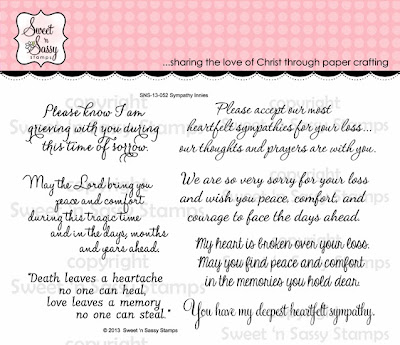 Sweet 'n Sassy
stamps
...sharing the love of Christ through paper crafting
SNS-13-052 Sympathy Innies
Please know I am
grieving with you during
this time of sorrow.
May the Lord bring you
peace and comfort
during this tragic time
and in the days, months
and years ahead.
"Death leaves a heartache
no one can heal,
love leaves a memory
no one can steal."
Please accept our most
heartfelt sympathies for your loss...
our thoughts and prayers are with you.
We are so very sorry for your loss
and wish you peace, comfort, and
courage to face the days ahead.
My heart is broken over your loss.
May you find peace and comfort
in the memories you hold dear.
You have my deepest heartfelt sympathy.
© 2013 Sweet 'n Sassy Stamps
copyright
Sweet 'n Sassy Stamps
copyright
Sweet 'n Sassy Stamps
copyright
Sweet 'n Sassy Stamps
copyright
Sweet 'n Sassy Stamps
copyright
Sweet 'n Sassy Stamps
copyright
Sweet 'n Sassy Stamps